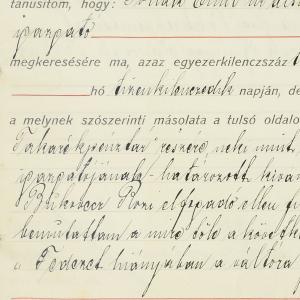 tanusítom, hogy:
igazgató
megkeresésére ma, azaz egyezerkilenczszáz
hó tizenkilenczedik napján, de
a melynek szószerinti másolata a tulsó oldalo
Takarékpénztár" részére neki mint
igazgatójának - határozott kíván
Bukovecz Rozi elfogadó ellen fi
bemutattam a mire tőle a követk
„Fedezet hiányában a váltóra